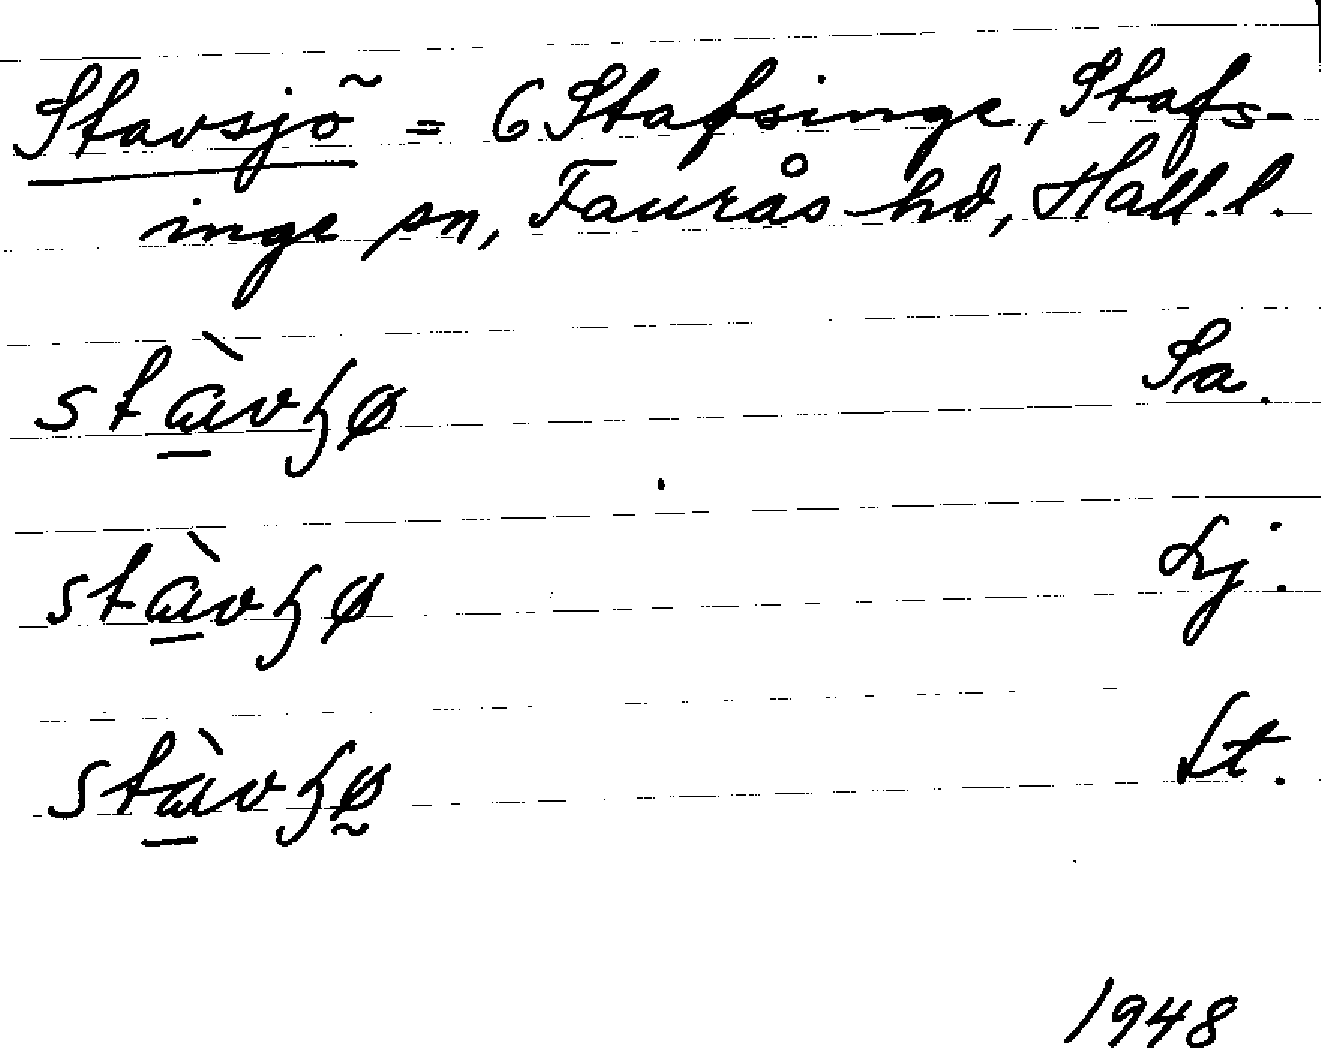 Stavsjö = 6 Stafsinge, Stafs-
inge sn, Faurås hd, Hall. l.
stàvʒø Sa.
stàvʒø Lj.
stàvʒø̰ St.
1948